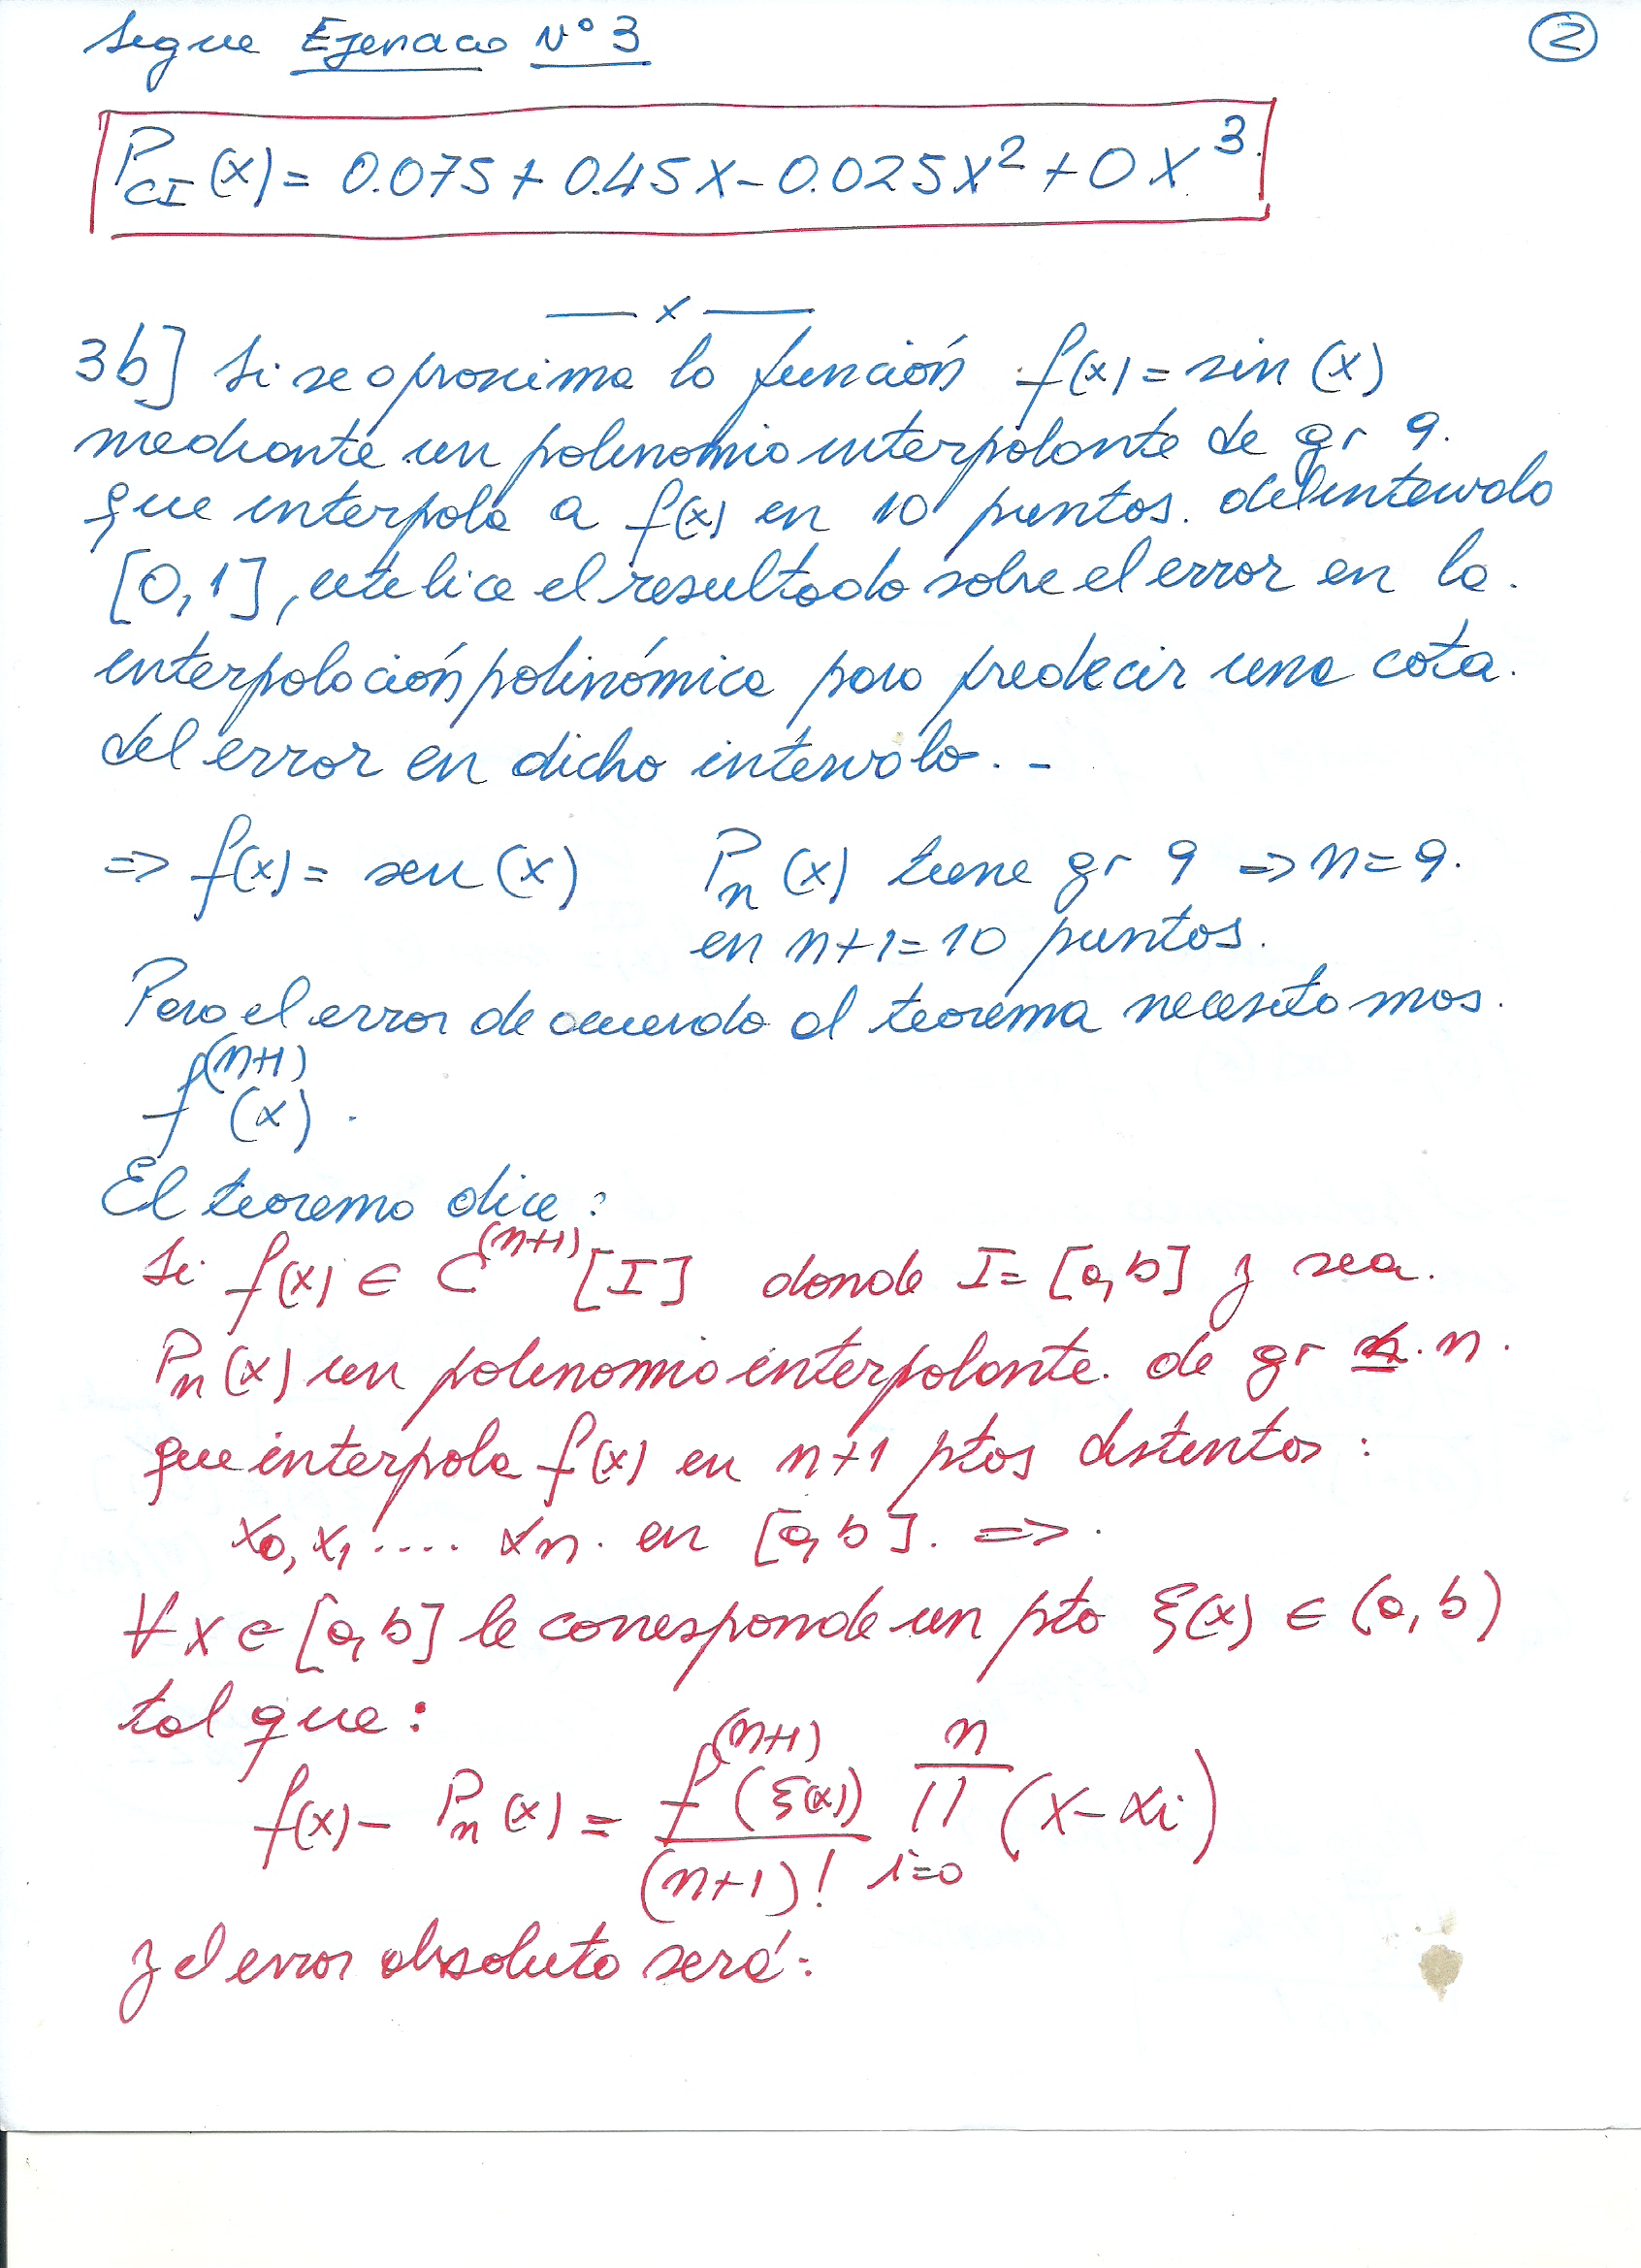 Sigue Ejercicio Nº 3
2
P_CI (x) = 0.075 + 0.45 x - 0.025 x² + 0 x³.
— x —
3b] Si se aproxima la función f(x) = sin (x)
mediante un polinomio interpolante de gr 9.
que interpola a f(x) en 10 puntos. del intervalo
[0,1], utilice el resultado sobre el error en la.
interpolación polinómica para predecir una cota.
del error en dicho intervalo. -
=> f(x) = sen (x) P_n (x) tiene gr 9 => n = 9.
en n+1 = 10 puntos.
Para el error de acuerdo al teorema necesitamos.
f^(n+1) (x).
El teorema dice:
Si f(x) ∈ C^(n+1) [I] donde I = [a, b] y sea.
P_n (x) un polinomio interpolante. de gr n.
que interpola f(x) en n+1 ptos distintos:
x₀, x₁ .... x_n. en [a, b]. =>.
∀ x ∈ [a, b] le corresponde un pto ξ(x) ∈ (a, b)
tal que:
f(x) - P_n (x) = f^(n+1) (ξ(x)) / (n+1)! ∏_{i=0}^{n} (x - x_i)
y el error absoluto será: